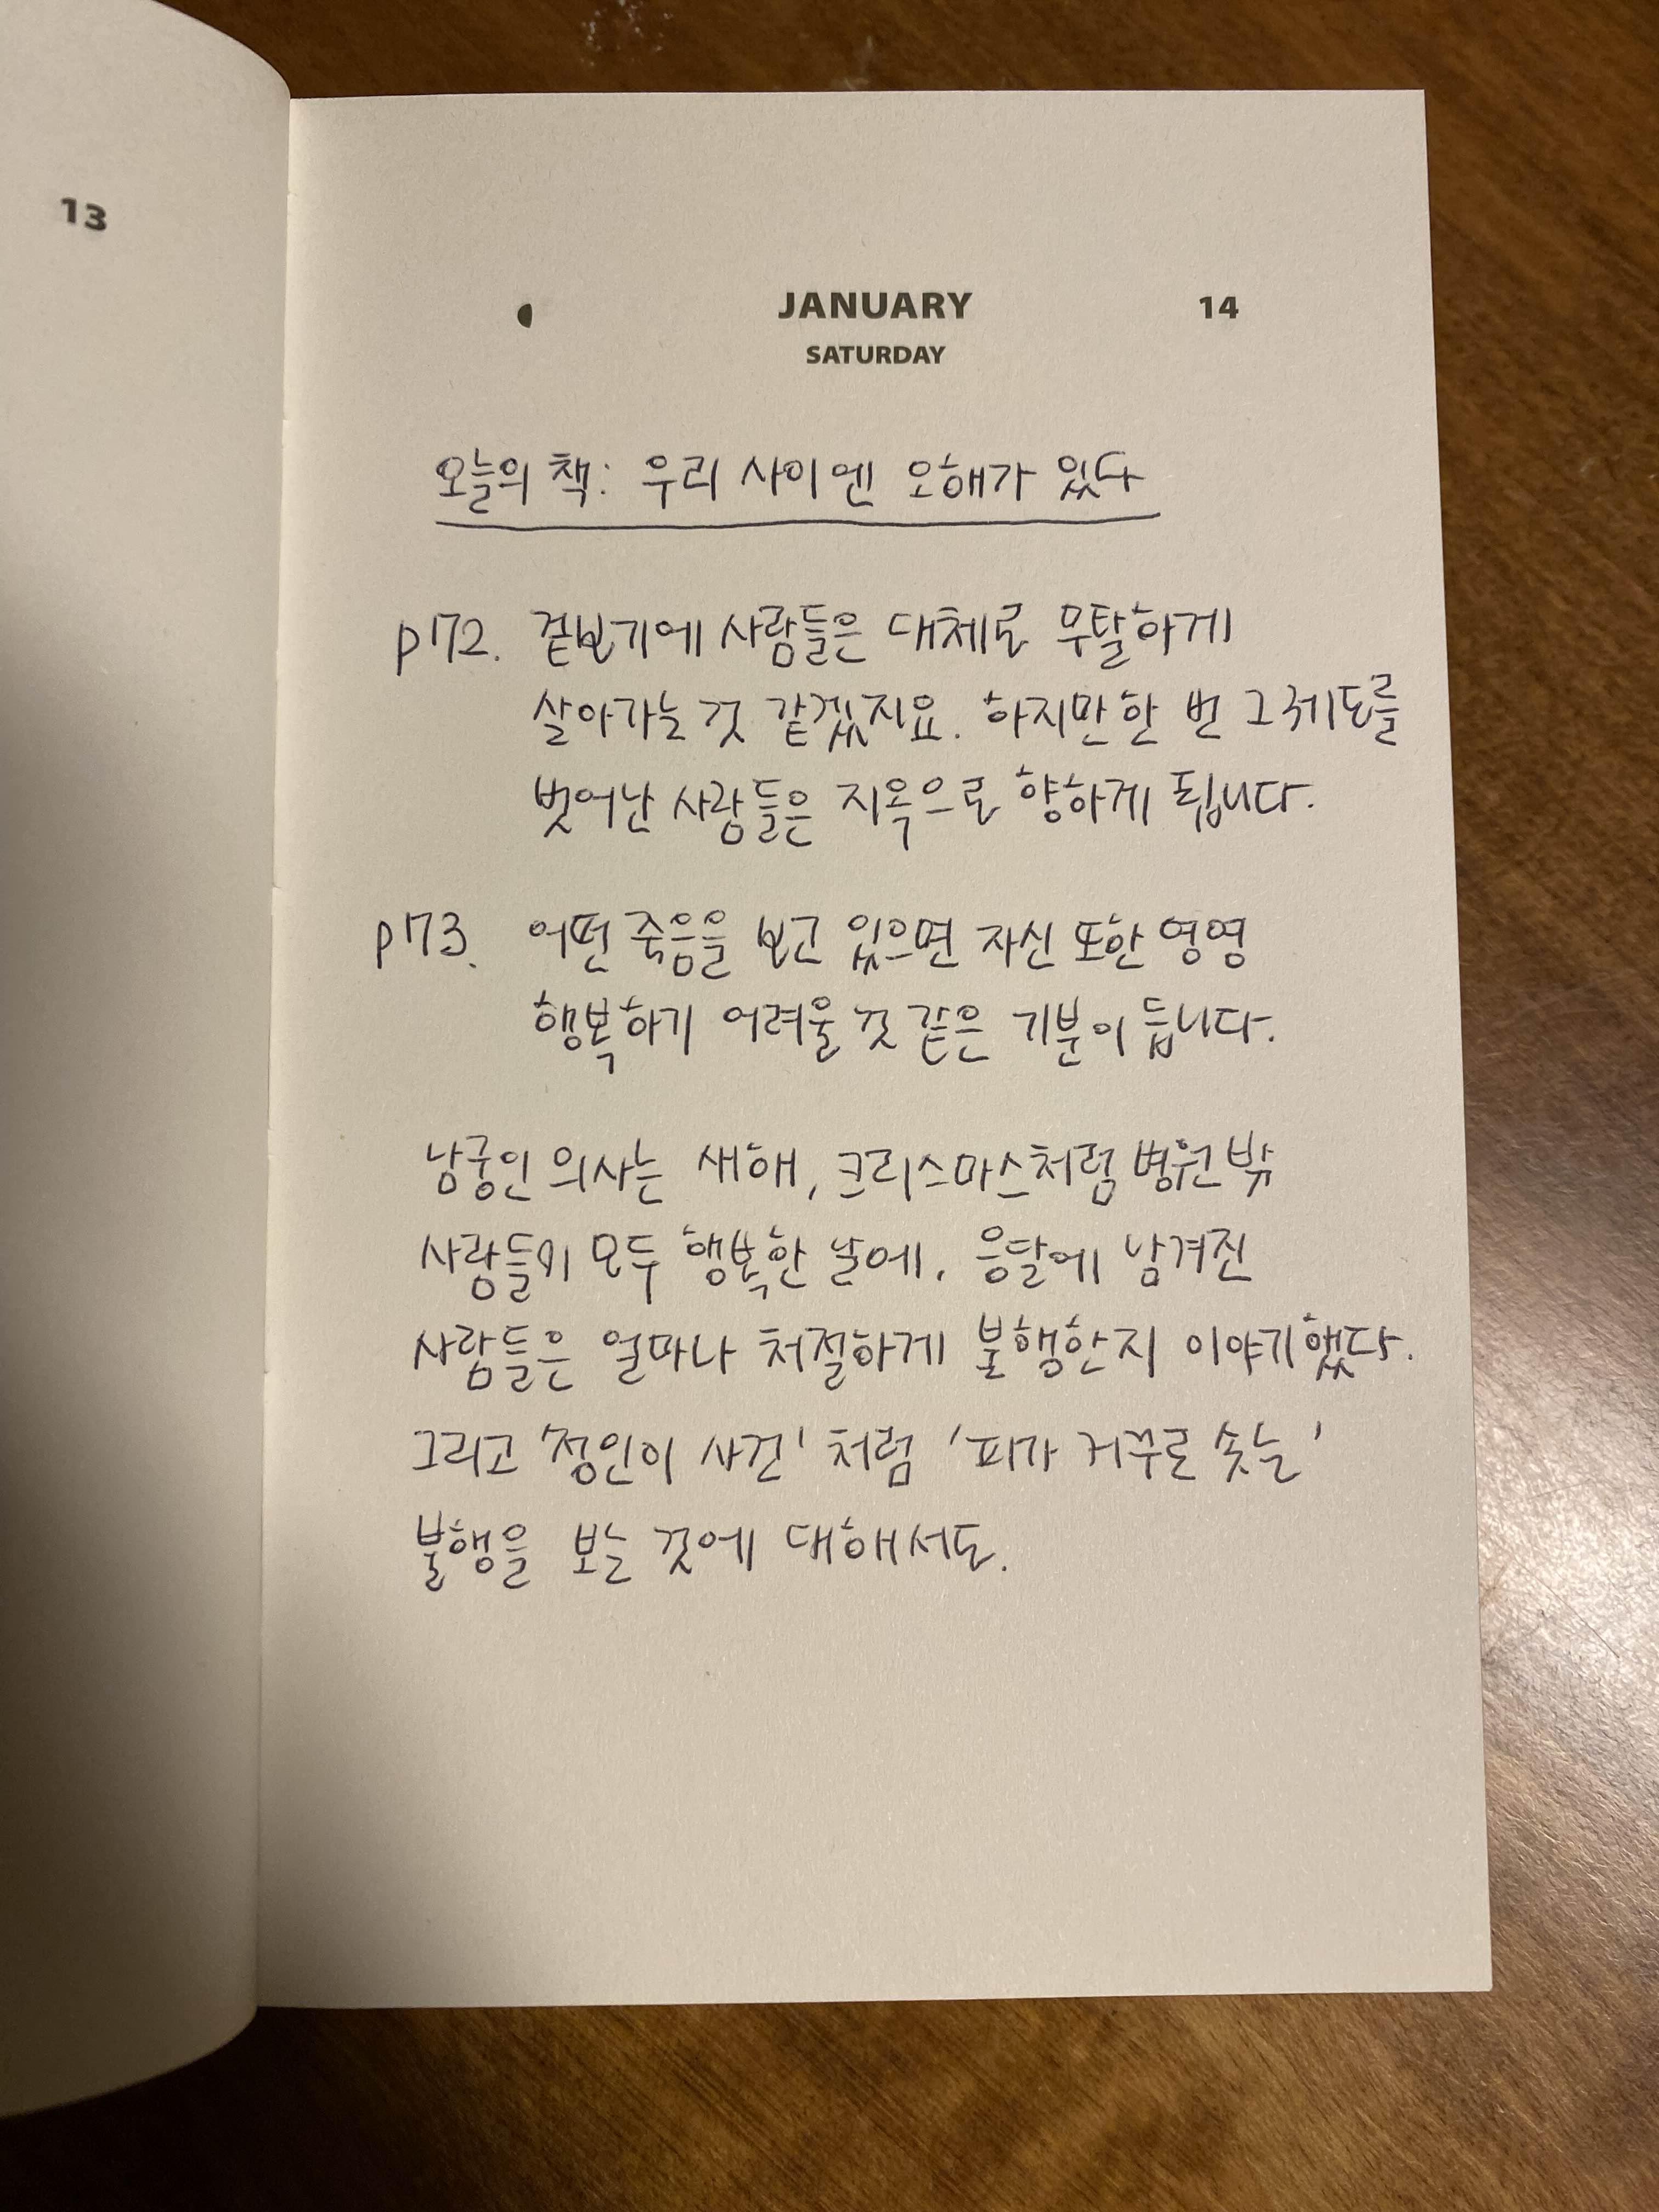 13
JANUARY 14
SATURDAY
오늘의 책: 우리 사이엔 오해가 있다
p172. 겉보기에 사람들은 대체로 무탈하게
살아가는 것 같겠지요. 하지만 한 번 그 궤도를
벗어난 사람들은 지옥으로 향하게 됩니다.
p173. 어떤 죽음을 보고 있으면 자신 또한 영영
행복하기 어려울 것 같은 기분이 듭니다.
남궁인 의사는 새해, 크리스마스처럼 병원 밖
사람들이 모두 행복한 날에, 응달에 남겨진
사람들은 얼마나 처절하게 불행한지 이야기했다.
그리고 '정인이 사건' 처럼 '피가 거꾸로 솟는'
불행을 보는 것에 대해서도.